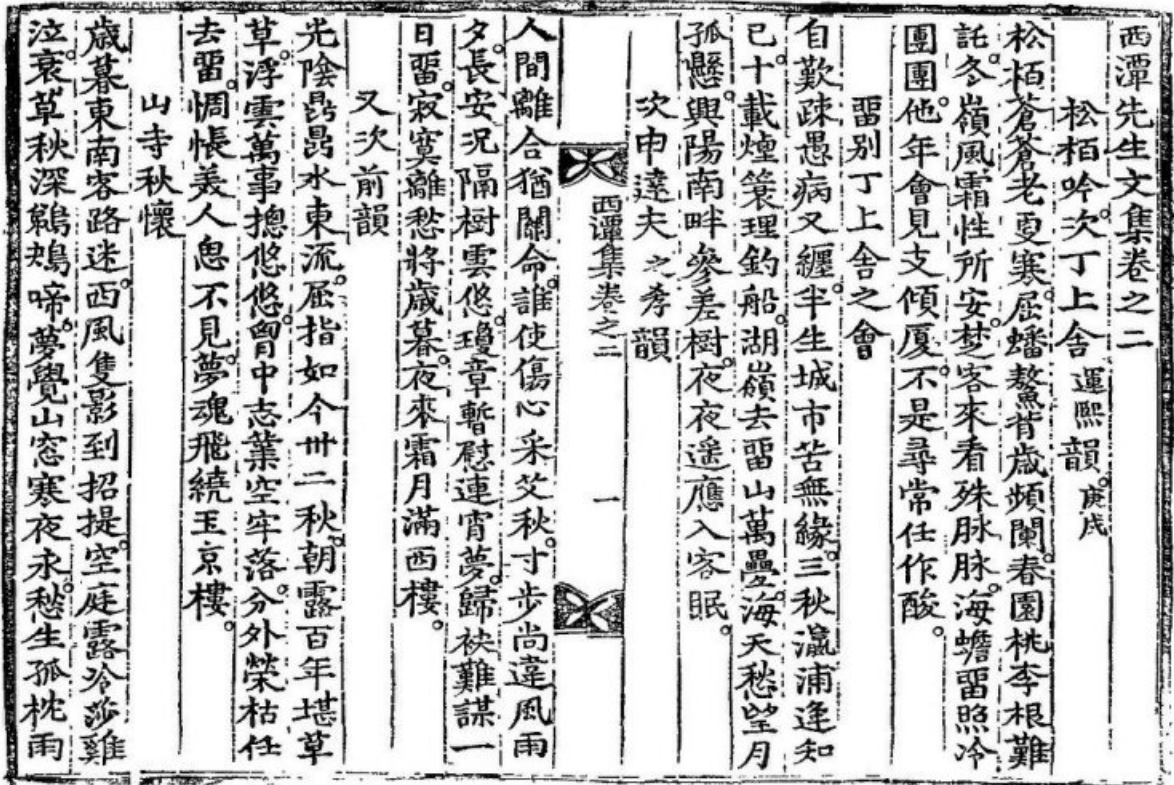 西潭先生文集卷之二
松栢吟。次丁上舍運熙韻。庚戌
松栢蒼蒼老更寒。屈蟠鰲背歲頻闌。春園桃李根難
託。冬嶺風霜性所安。楚客來看殊脉脉。海蟾畱照冷
團團。他年會見支傾厦。不是尋常任作酸。
畱別丁上舍之會
自歎疎愚病又纏。半生城市苦無緣。三秋瀛浦逢知
已。十載煙簑理釣船。湖嶺去畱山萬疊。海天愁望月
孤懸。興陽南畔參差樹。夜夜遙應入客眠。
次申達夫之孝韻
西潭集卷之二
一
人間離合猶關命。誰使傷心采艾秋。寸步尚違風雨
夕。長安況隔樹雲悠。瓊章暫慰連宵夢。歸袂難謀一
日畱。寂寞離愁將歲暮。夜來霜月滿西樓。
又次前韻
光陰昆昆水東流。屈指如今卅二秋。朝露百年堪草
草。浮雲萬事摠悠悠。胷中志業空牢落。分外榮枯任
去畱。惆悵美人思不見。夢魂飛繞玉京樓。
山寺秋懷
歲暮東南客路迷。西風隻影到招提。空庭露冷莎雞
泣。衰草秋深鵜鴂啼。夢覺山窓寒夜永。愁生孤枕雨